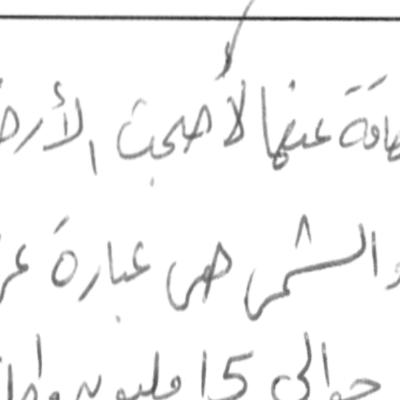 طاقة عنها لأصبحت الأرض
والشمس هي عبارة عن
حوالي 15 مليون